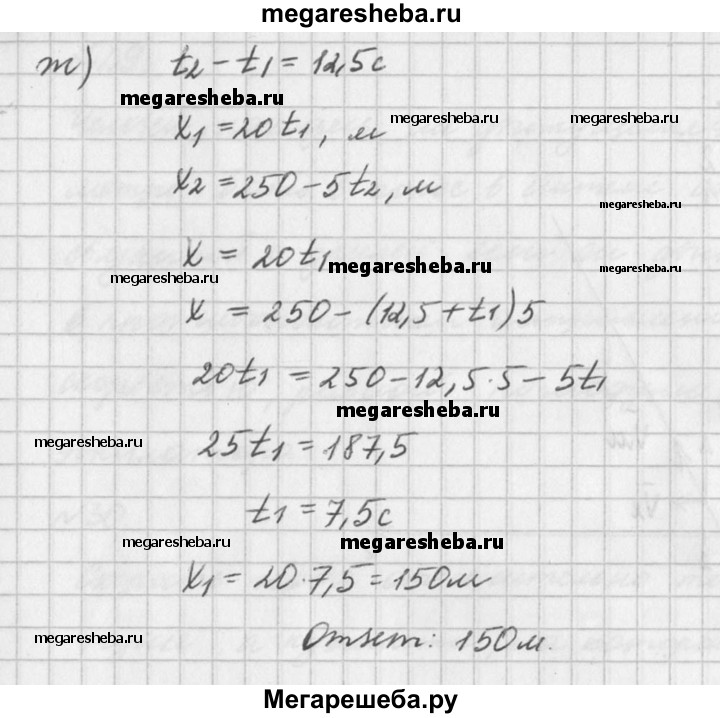 megaresheba.ru
т) t₂ - t₁ = 12,5 с
megaresheba.ru
x₁ = 20t₁, м
megaresheba.ru
x₂ = 250 - 5t₂, м
megaresheba.ru
x = 20t₁
megaresheba.ru
megaresheba.ru
megaresheba.ru
x = 250 - (12,5 + t₁)5
20t₁ = 250 - 12,5·5 - 5t₁
megaresheba.ru
megaresheba.ru
25t₁ = 187,5
t₁ = 7,5 с
megaresheba.ru
megaresheba.ru
x₁ = 20·7,5 = 150 м
megaresheba.ru
Ответ: 150 м.
Мегарешеба.ру